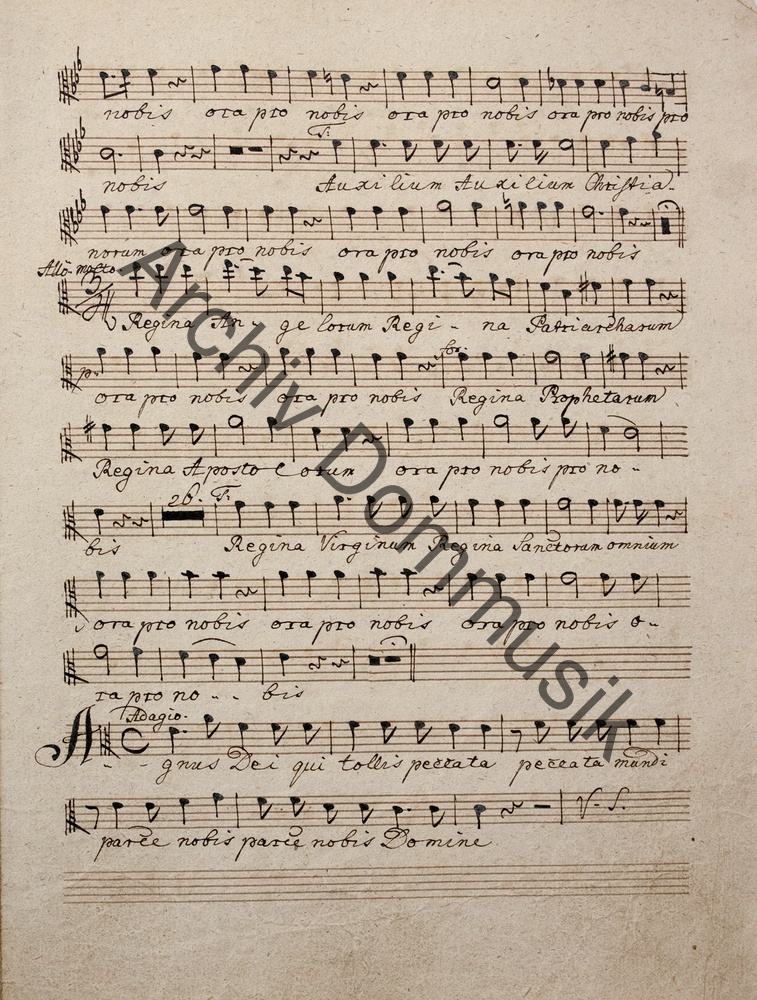 nobis ora pro nobis ora pro nobis ora pro nobis pro
T:
nobis Auxilium Auxilium Christia-
norum ora pro nobis ora pro nobis ora pro nobis
Allo: molto
3/4
Regina An- ge lorum Regi - na Patriarcharum
p: for:
ora pro nobis ora pro nobis Regina Prophetarum
Regina Aposto lorum ora pro nobis pro no --
26. T:
bis Regina Virginum Regina Sanctorum omnium
ora pro nobis ora pro nobis ora pro nobis o --
ra pro no - - - bis
Adagio.
A - - gnus Dei qui tollis peccata peccata mundi
V. S.
parce nobis parce nobis Domine
Archiv Dommusik